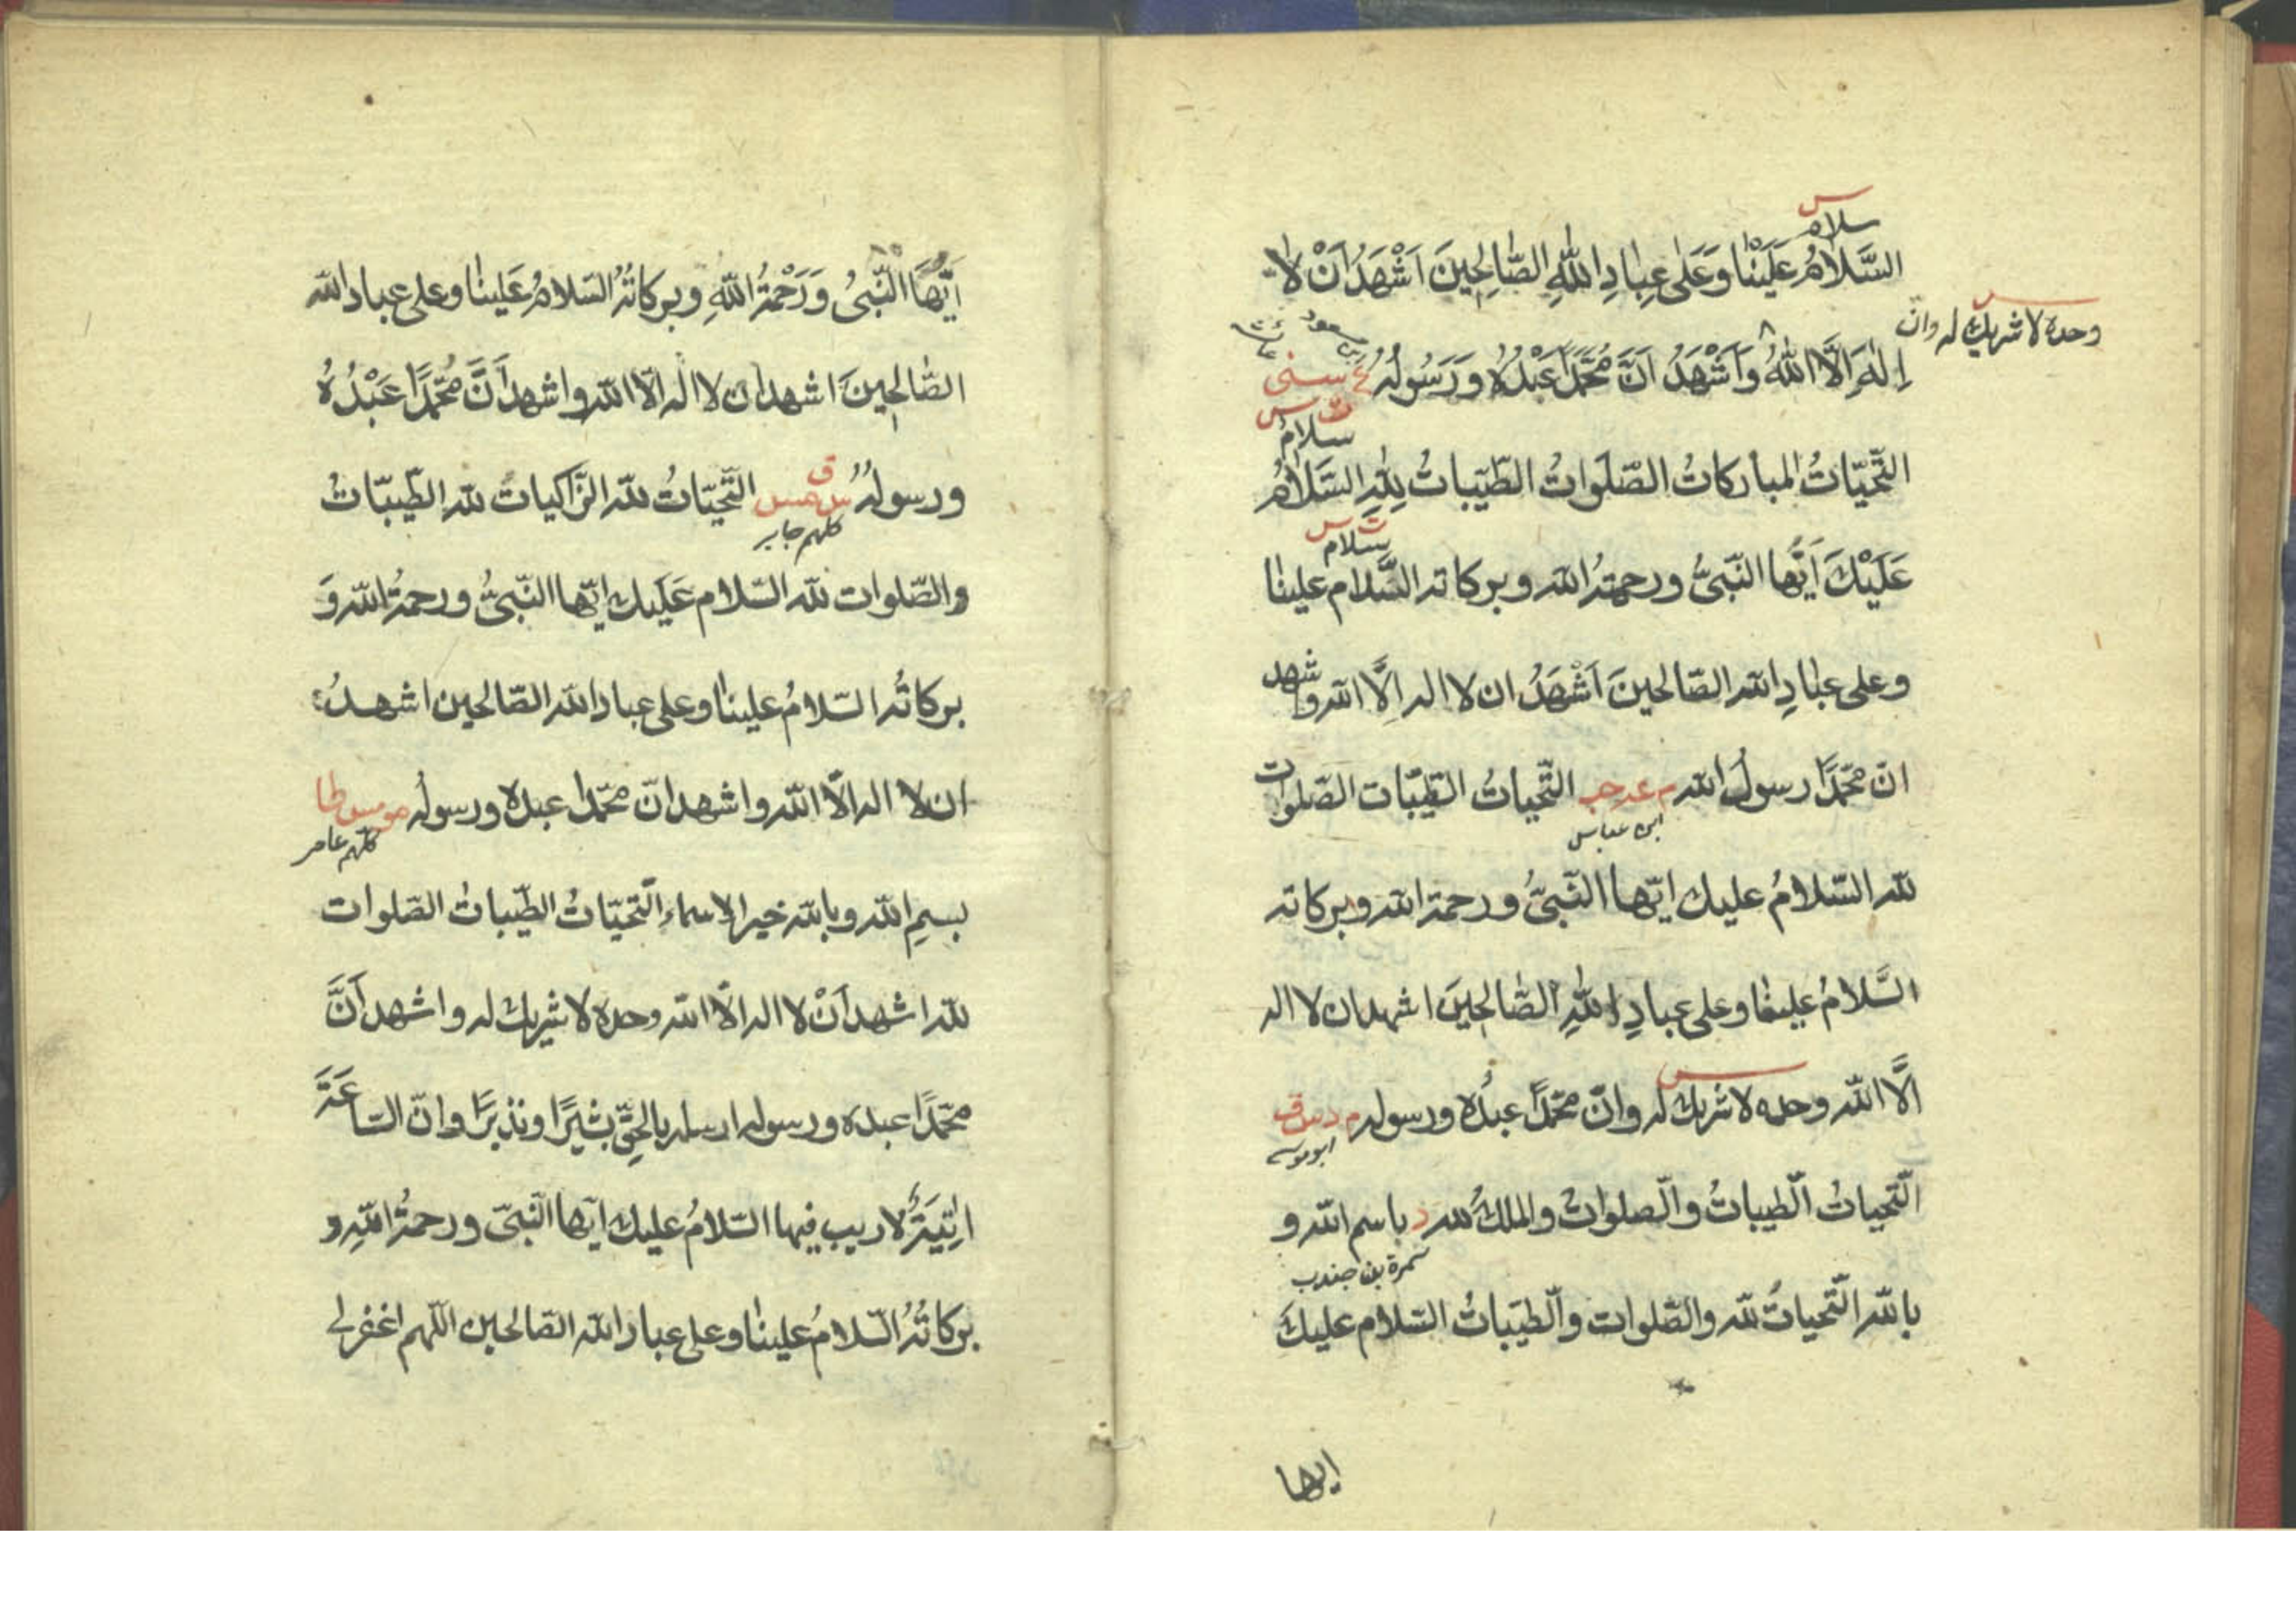 س
سلام
السَّلَامُ عَلَيْنَا وَعَلَى عِبَادِ اللّٰهِ الصَّالِحِينَ اَشْهَدُ اَنْ لَا
س
وحده لا شريك له وان
اِلٰهَ اِلَّا اللّٰهُ وَاَشْهَدُ اَنَّ مُحَمَّدًا عَبْدُهُ وَرَسُولُهُ ع سنى
س
سلام
التَّحِيَّاتُ المباركاتُ الصَّلَوَاتُ الطَّيِّبَاتُ لِلّٰهِ السَّلَامُ
ت س
سلام
عَلَيْكَ اَيُّهَا النَّبِىُّ ورحمةُ الله وبركاته السَّلام علينا
وعلى عبادِ الله الصّالحينَ اَشْهَدُ ان لا اله اِلَّا الله واشهد
انّ محمّدًا رسولُ الله م عه حب التَّحياتُ الطّيّبات الصّلوات
ابن عباس
لله السّلامُ عليك ايّها النّبىُّ ورحمة الله وبركاته
السَّلامُ علينا وعلى عبادِ اللّٰهِ الصَّالحينَ اشهد ان لا اله
س
الَّا الله وحده لا شريك له وانّ محمّدًا عبدُه ورسوله م د س ق
ابو موسے
التّحياتُ الطّيباتُ والصلواتُ والملكُ لله د باسم الله و
سمرة بن جندب
بالله التّحياتُ لله والصّلوات والطّيّباتُ السّلام عليكَ
ايها
اَيُّهَا النَّبِىُ وَرَحْمَةُ اللّٰهِ وبركاتُهُ السّلامُ عَلينا وعلى عباد الله
الصّالحِينَ اشهد ان لا اله الّا الله واشهد اَنَّ مُحَمَّدًا عَبْدُهُ
ورسولُهُ س ق مس التَّحيّاتُ لله الزّاكيات لله الطّيبّاتُ
كلهم جابر
والصّلوات لله السّلام عَلَيك ايّها النّبىُّ ورحمةُ الله وَ
بركاتُه السّلامُ علينا وعلى عباد الله الصّالحين اشهدُ
ان لا اله الّا الله واشهد انّ محمّدا عبده ورسولُه مو مس طا
كلهم عامر
بسمِ الله وبالله خير الاسماء التّحيّاتُ الطّيباتُ الصّلوات
لله اشهد اَنْ لا اله الّا الله وحده لا شريك له واشهد اَنَّ
محمّدًا عبده ورسوله ارسله بالحقِّ بشيرًا ونذيرًا وانّ السّاعَةَ
اٰتِيَةٌ لا ريب فيها السّلامُ عليك ايّها النّبىّ ورحمةُ اللهِ و
بركاتُهُ السّلامُ علينا وعلى عباد الله الصّالحين اللّهم اغفر لى